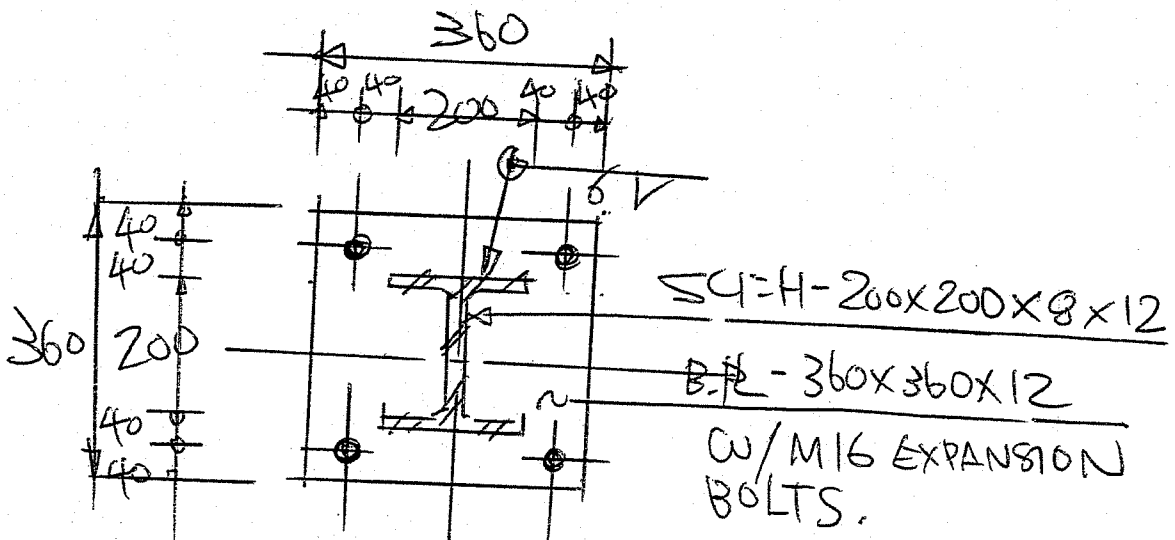 360
40 40 200 40 40
6
40
40
360 200
40
40
SC1=H-200x200x8x12
B.PL-360x360x12
W/M16 EXPANSION
BOLTS.